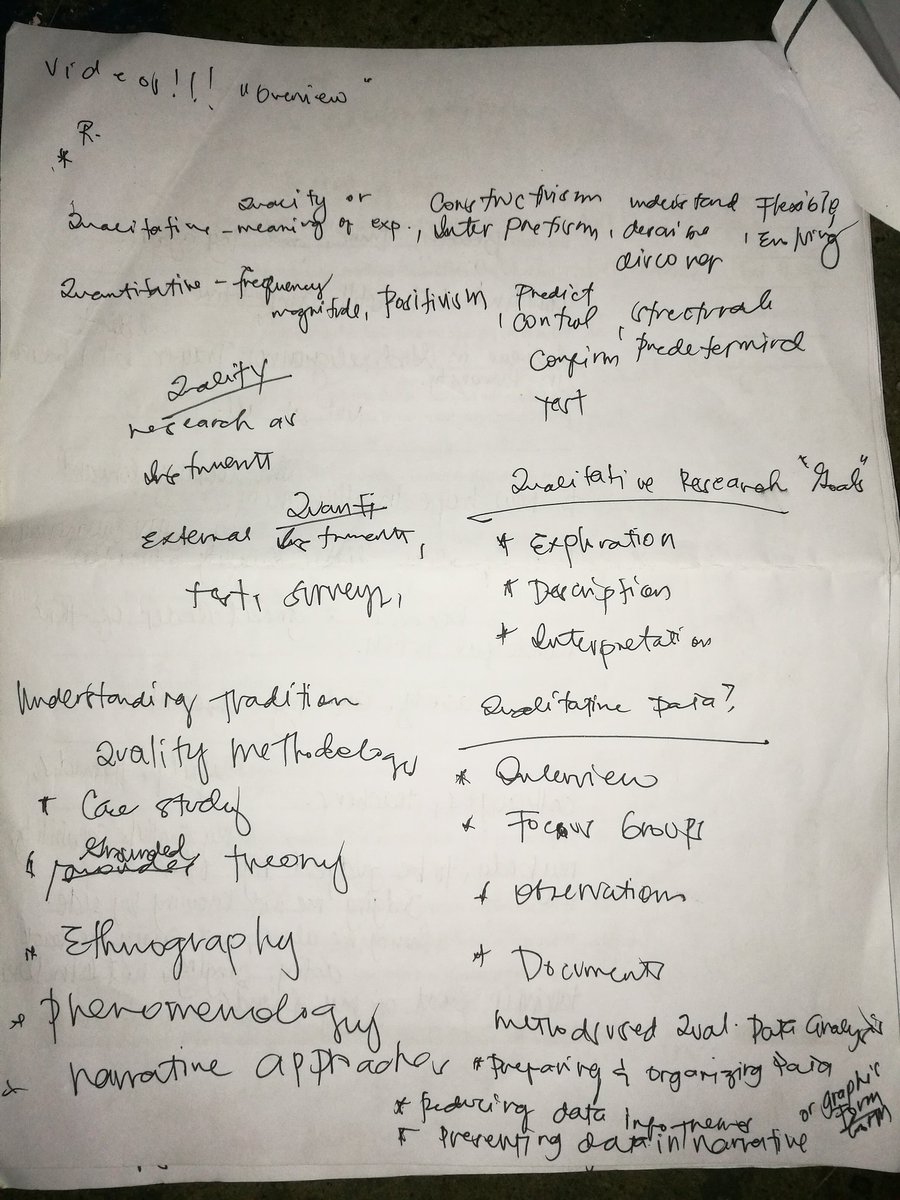 Videos!!! "Overview"
* R.
Qualitative - Quality or meaning of exp., Constructivism Interpretism, understand describe discover, Flexible Evolving
Quantitative - frequency magnitude, Positivism, Predict control confirm test, structural predetermind
Quality
research as
instruments
Quanti
External instruments,
test, surveys,
Qualitative Research "Goals"
* Exploration
* Description
* Interpretation
Understanding tradition
Quality methodology
* Case study
* Grounded theory
* Ethnography
* phenomenology
* narrative approaches
Qualitative Data?
* Overview
* Focus Groups
* observations
* Documents
methods used Qual. Data Analysis
* Preparing & organizing Data
* Reducing data into themes
* Presenting data in narrative
or graphic
form